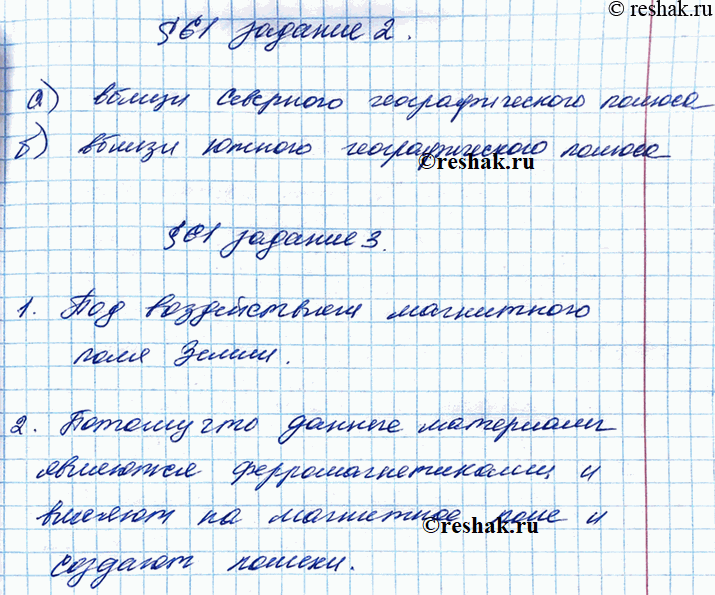 ©reshak.ru
§61 задание 2.
а) вблизи северного географического полюса
б) вблизи южного географического полюса
©reshak.ru
§61 задание 3.
1. Под воздействием магнитного
поля Земли.
2. Потому что данные материалы
являются ферромагнетиками и
влияют на магнитное поле и
©reshak.ru
создают помехи.